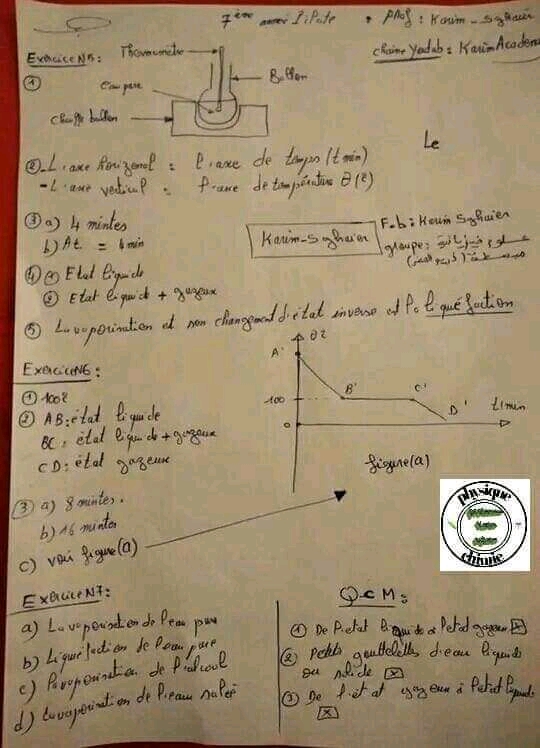 7ème année Pilote . Prof : Karim - Sghaier
Chaine Youtub : Karim Academ
Exercice N5 :
Thermomètre
①
Eau pure
Ballon
Chauffe ballon
Le
② - L'axe horizonal : l'axe de temps (t min)
- L'axe vertical : l'axe de température θ(°C)
③ a) 4 mintes
b) At = 4 min
Karim - Sghaier
F.b : Karim Sghaier
groupe :
④ ① Etat liquide
② Etat liquide + gazeux
⑤ La vaporisation et son changement d'état inverse est la liquéfaction
Exercice N6 :
① 100°C
② AB : état liquide
BC : état liquide + gazeux
CD : état gazeux
θ°C
A'
B'
C'
D'
100
0
t(min
figure (a)
③ a) 8 mintes .
b) 16 mintes
c) voir figure (a)
physique
chimie
Exercice N7 :
a) La vaporisation de l'eau pure
b) Liquéfaction de l'eau pure
c) la vaporisation de l'alcool
d) La vaporisation de l'eau salée
Q.C.M :
① De l'etat liquide à l'etat gazeux ☒
② Petits gouttelettes d'eau liquide
ou solide ☒
③ De l'état gazeux à l'etat liquide
☒